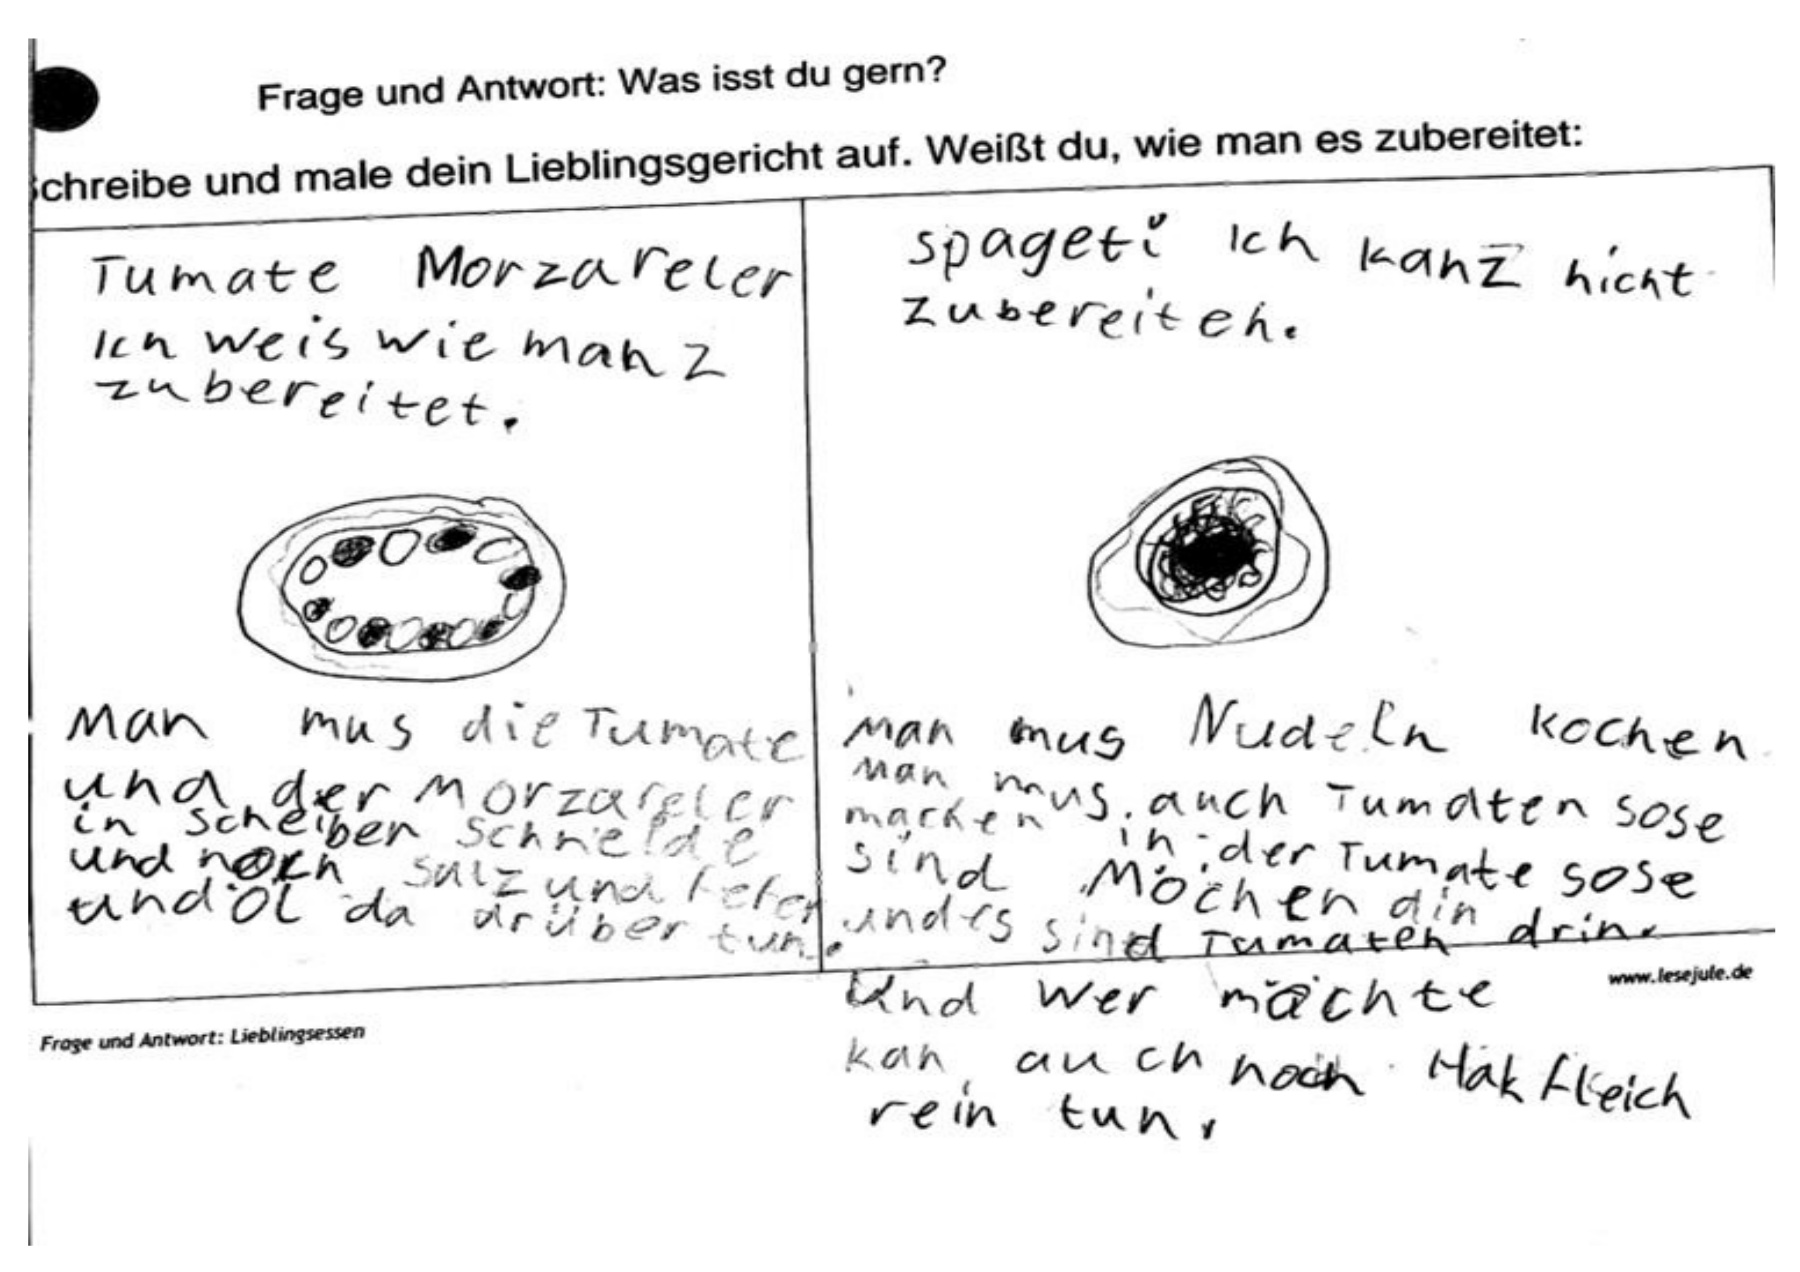 Frage und Antwort: Was isst du gern?
chreibe und male dein Lieblingsgericht auf. Weißt du, wie man es zubereitet:
Tumate Morzareler
Ich weis wie man z
zubereitet.
Man mus die Tumate
und der Morzareler
in scheiben schneide
und noch Salz und Fefer
und Öl da drüber tun.
spageti Ich kanz nicht
zubereiten.
Man mus Nudeln kochen
Man mus auch Tumaten sose
machen in der Tumate sose
sind Möchen din
und es sind Tumaten drin.
Und wer möchte
kan auch noch Hak fleich
rein tun.
www.lesejule.de
Frage und Antwort: Lieblingsessen